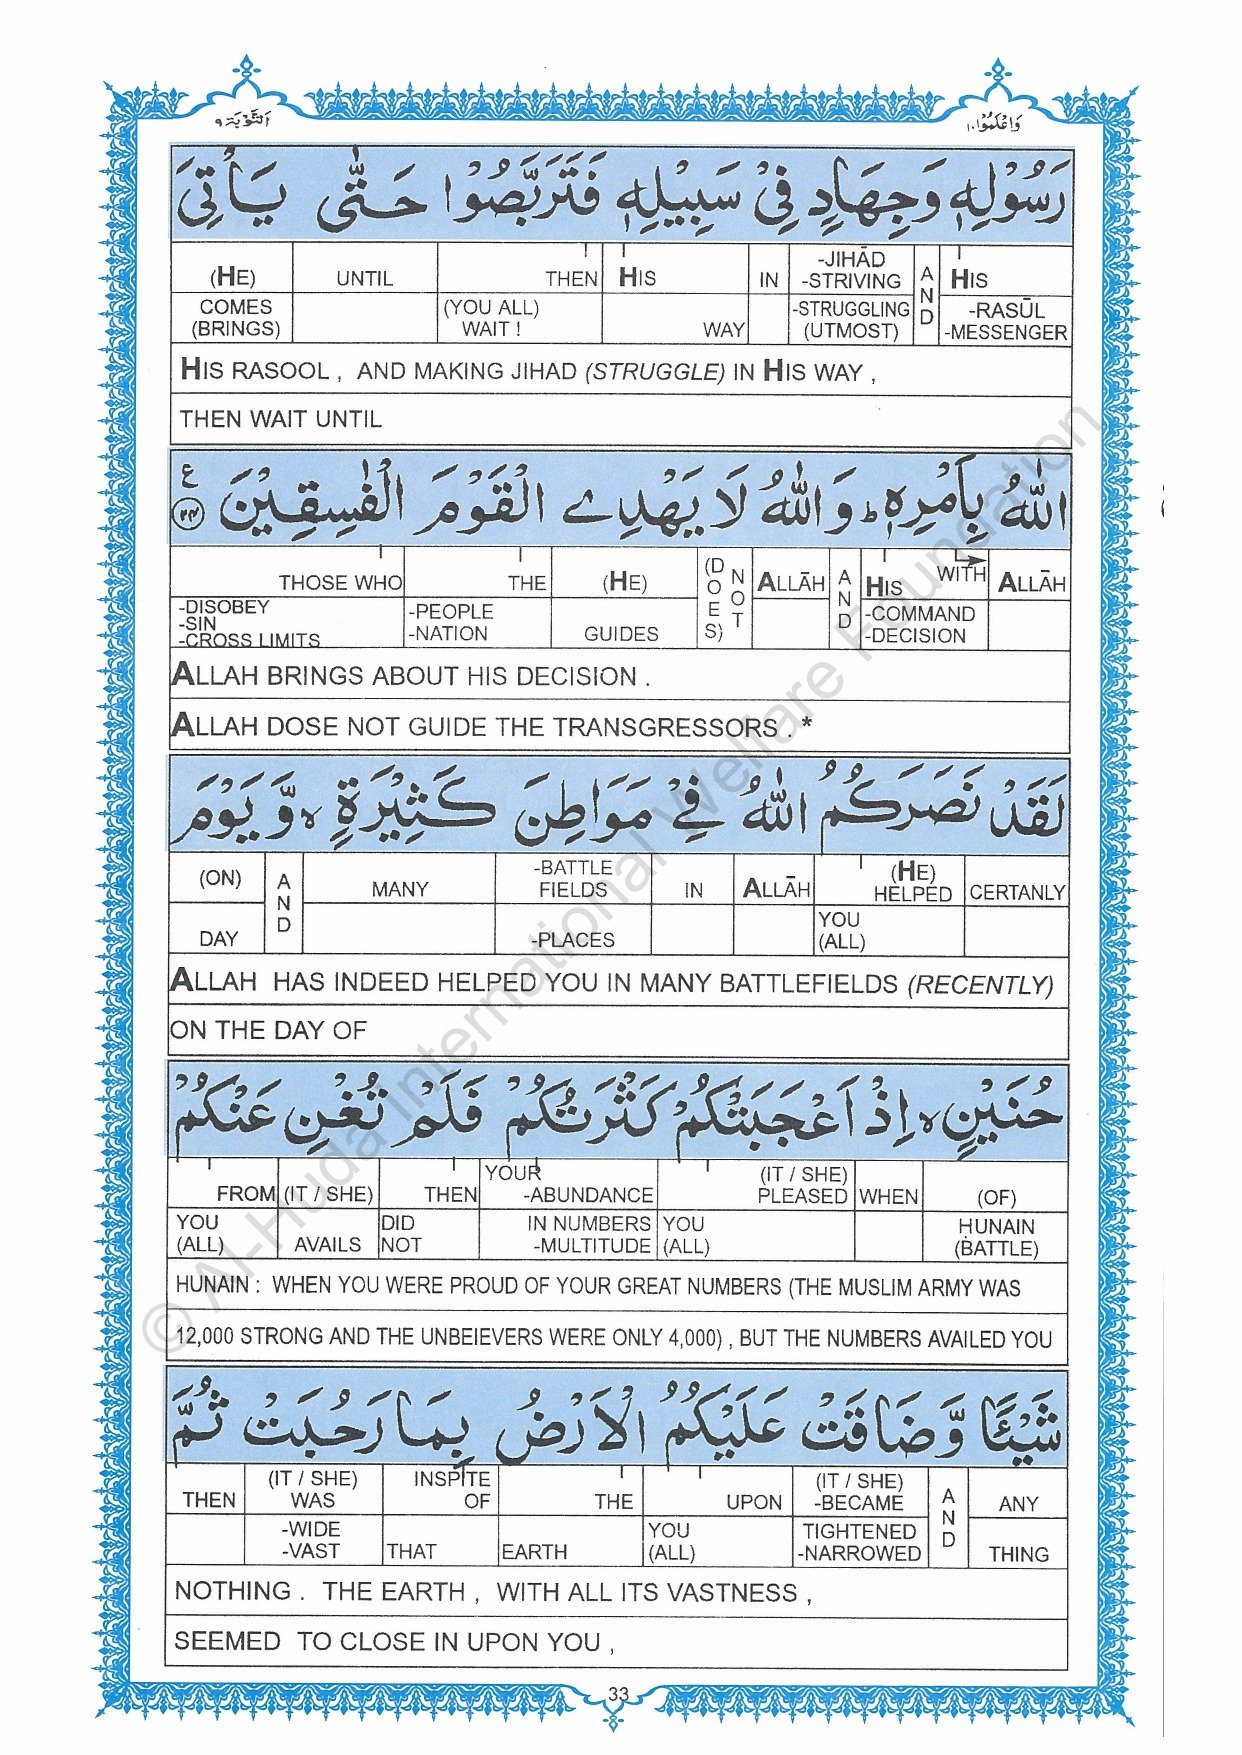 التَّوْبَة ٩
وَاعْلَمُوْا ١٠
رَسُوْلِهٖ وَجِهَادٍ فِيْ سَبِيْلِهٖ فَتَرَبَّصُوْا حَتّٰى يَاْتِيَ
(HE) UNTIL THEN HIS IN -JIHĀD -STRIVING AND HIS
COMES (BRINGS) (YOU ALL) WAIT ! WAY -STRUGGLING (UTMOST) -RASŪL -MESSENGER
HIS RASOOL , AND MAKING JIHAD (STRUGGLE) IN HIS WAY ,
THEN WAIT UNTIL
اللّٰهُ بِاَمْرِهٖ ط وَاللّٰهُ لَا يَهْدِے الْقَوْمَ الْفٰسِقِيْنَ ٢٤ ع
THOSE WHO THE (HE) (DOES) NOT ALLĀH AND HIS WITH ALLĀH
-DISOBEY -SIN -CROSS LIMITS -PEOPLE -NATION GUIDES -COMMAND -DECISION
ALLAH BRINGS ABOUT HIS DECISION .
ALLAH DOSE NOT GUIDE THE TRANSGRESSORS . *
لَقَدْ نَصَرَكُمُ اللّٰهُ فِيْ مَوَاطِنَ كَثِيْرَةٍ ۙ وَّيَوْمَ
(ON) AND MANY -BATTLE FIELDS IN ALLĀH (HE) HELPED CERTANLY
DAY -PLACES YOU (ALL)
ALLAH HAS INDEED HELPED YOU IN MANY BATTLEFIELDS (RECENTLY)
ON THE DAY OF
حُنَيْنٍ ۙ اِذْ اَعْجَبَتْكُمْ كَثْرَتُكُمْ فَلَمْ تُغْنِ عَنْكُمْ
FROM (IT / SHE) THEN YOUR -ABUNDANCE (IT / SHE) PLEASED WHEN (OF)
YOU (ALL) AVAILS DID NOT IN NUMBERS -MULTITUDE YOU (ALL) HUNAIN (BATTLE)
HUNAIN : WHEN YOU WERE PROUD OF YOUR GREAT NUMBERS (THE MUSLIM ARMY WAS
12,000 STRONG AND THE UNBEIEVERS WERE ONLY 4,000) , BUT THE NUMBERS AVAILED YOU
شَيْئًا وَّضَاقَتْ عَلَيْكُمُ الْاَرْضُ بِمَا رَحُبَتْ ثُمَّ
THEN (IT / SHE) WAS INSPITE OF THE UPON (IT / SHE) -BECAME AND ANY
-WIDE -VAST THAT EARTH YOU (ALL) TIGHTENED -NARROWED THING
NOTHING . THE EARTH , WITH ALL ITS VASTNESS ,
SEEMED TO CLOSE IN UPON YOU ,
33
© Al-Huda International Welfare Foundation